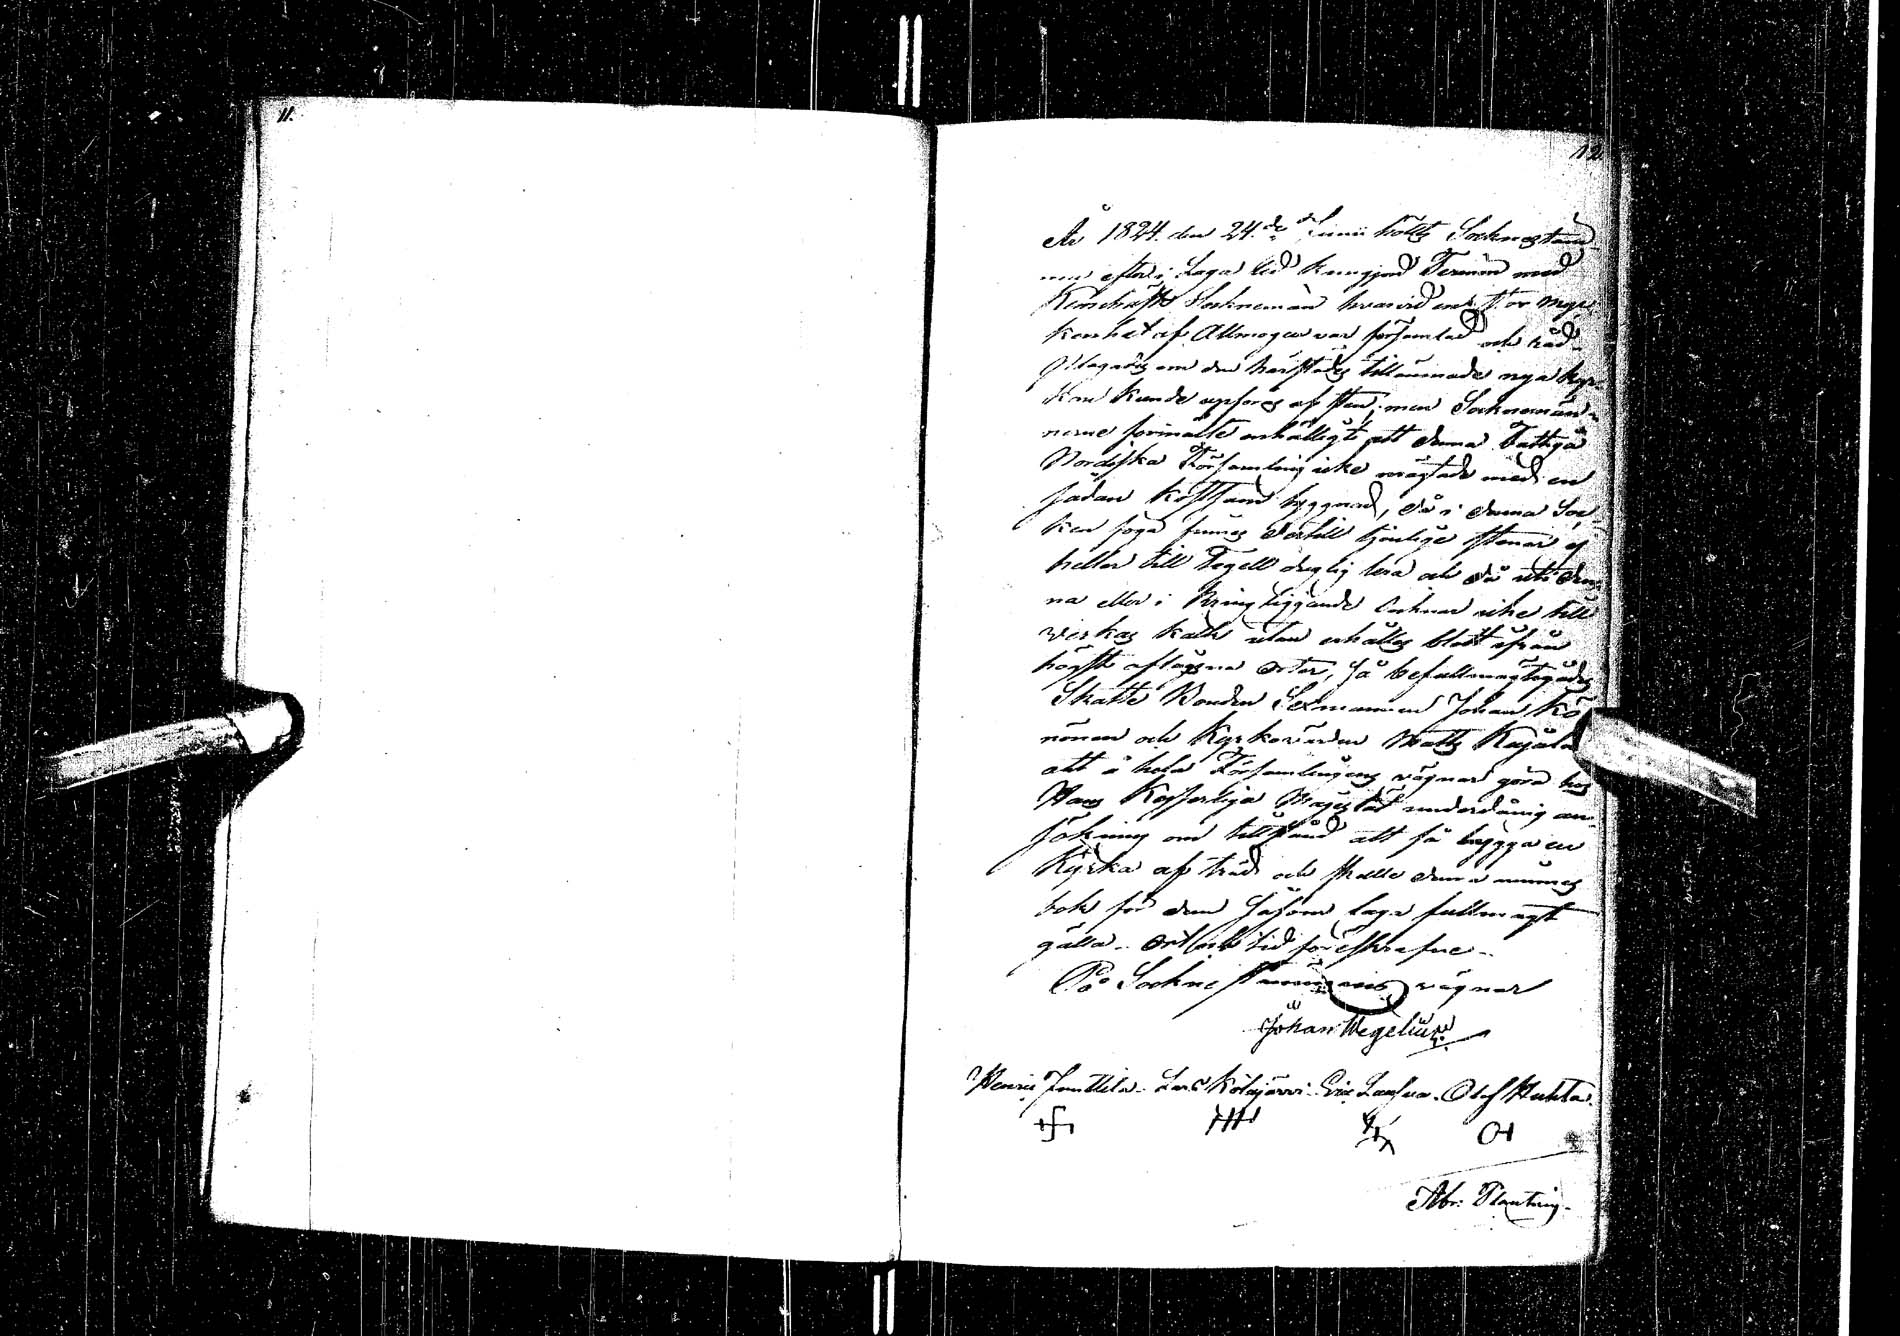 11.
12
År 1824. den 24.de Junii hölts Socknestäm-
ma efter i Laga tid kungjord Termin med
Socknemän hvarvid en stor myc-
kenhet af Allmogen var församlad och råd-
plägades om den härstädes tillämnade nya kyr-
kan kunde upföras af sten; men Socknemän-
nerne förmälte enhälligt att denna Fattiga
Nordiska Församling icke mägtade med en
sådan kostsam byggnad, då i denna Soc-
ken foga finnes dertill tjenlige stenar ej
heller till Tegell duglig lera och då uti den-
na eller i kringliggande Socknar icke till
verkas kalk utan erhålles blott ifrån
högst aflägsna orter, så befullmägtigades
Skatte Bonden Sexmannen Johan Kö
nönen och Kyrkovärden Matts Kajala
att å hela Församlingens vägnar göra hos
Hans Kejserliga Majestät underdånig an-
sökning om tillstånd att få bygga en
Kyrka af träd och skulle denna
bok för dem såsom laga fullmagt
gälla. Ort och tid föreskrefne.
På Sockne stämmans vägnar
Johan Wegelius
Henric Junttila. Lars Kolajärvi. Eric Laufva. Olof Huhta.
Abr: Plantting.